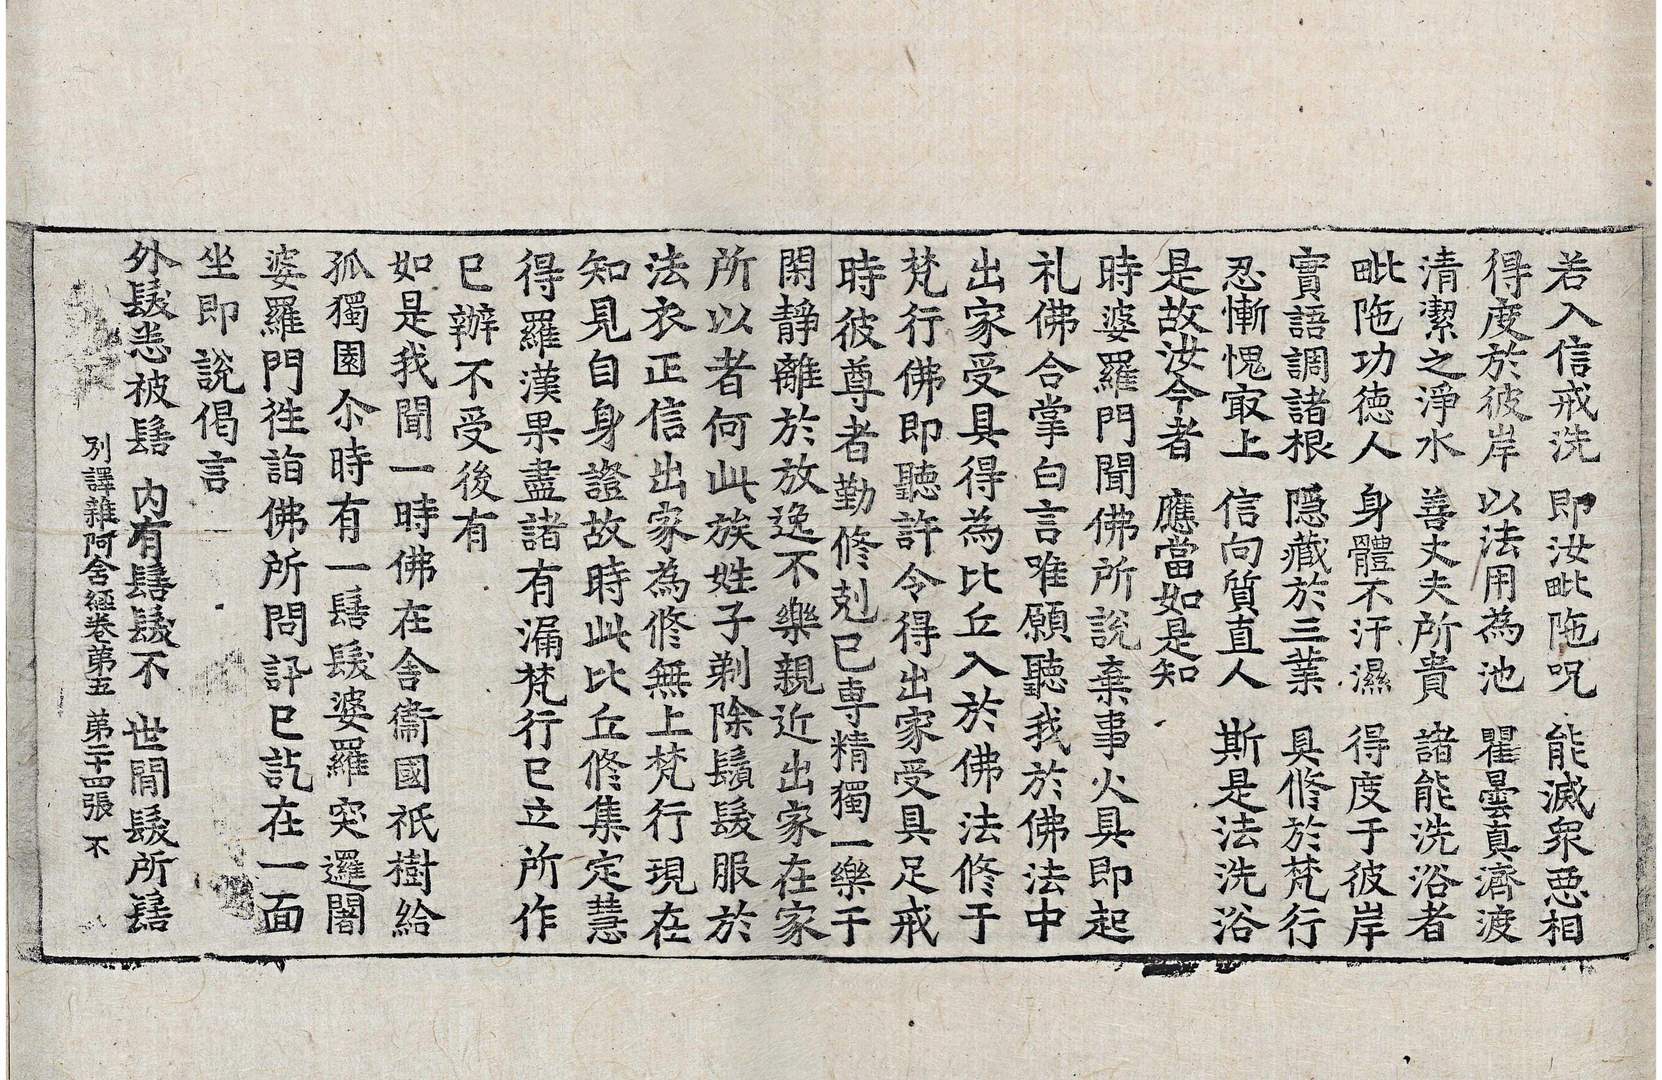 若入信戒洗　即汝毗陁呪　能滅衆惡相
得度於彼岸　以法用為池　瞿曇真濟渡
清潔之淨水　善丈夫所貴　諸能洗浴者
毗陁功德人　身體不汗濕　得度于彼岸
實語調諸根　隱藏於三業　具修於梵行
忍慚愧㝡上　信向質直人　斯是法洗浴
是故汝今者　應當如是知
時婆羅門聞佛所說棄事火具即起
礼佛合掌白言唯願聽我於佛法中
出家受具得為比丘入於佛法修于
梵行佛即聽許令得出家受具足戒
時彼尊者勤修剋己專精獨一樂于
閑靜離於放逸不樂親近出家在家
所以者何此族姓子剃除鬚髮服於
法衣正信出家為修無上梵行現在
知見自身證故時此比丘修集定慧
得羅漢果盡諸有漏梵行已立所作
已辦不受後有
如是我聞一時佛在舍衛國祇樹給
孤獨園尒時有一髻髮婆羅突邏闍
婆羅門徃詣佛所問訊已訖在一面
坐即說偈言
外髮悉被髻　內有髻髮不　世間髮所髻
別譯雜阿含經卷第五　第二十四張　不